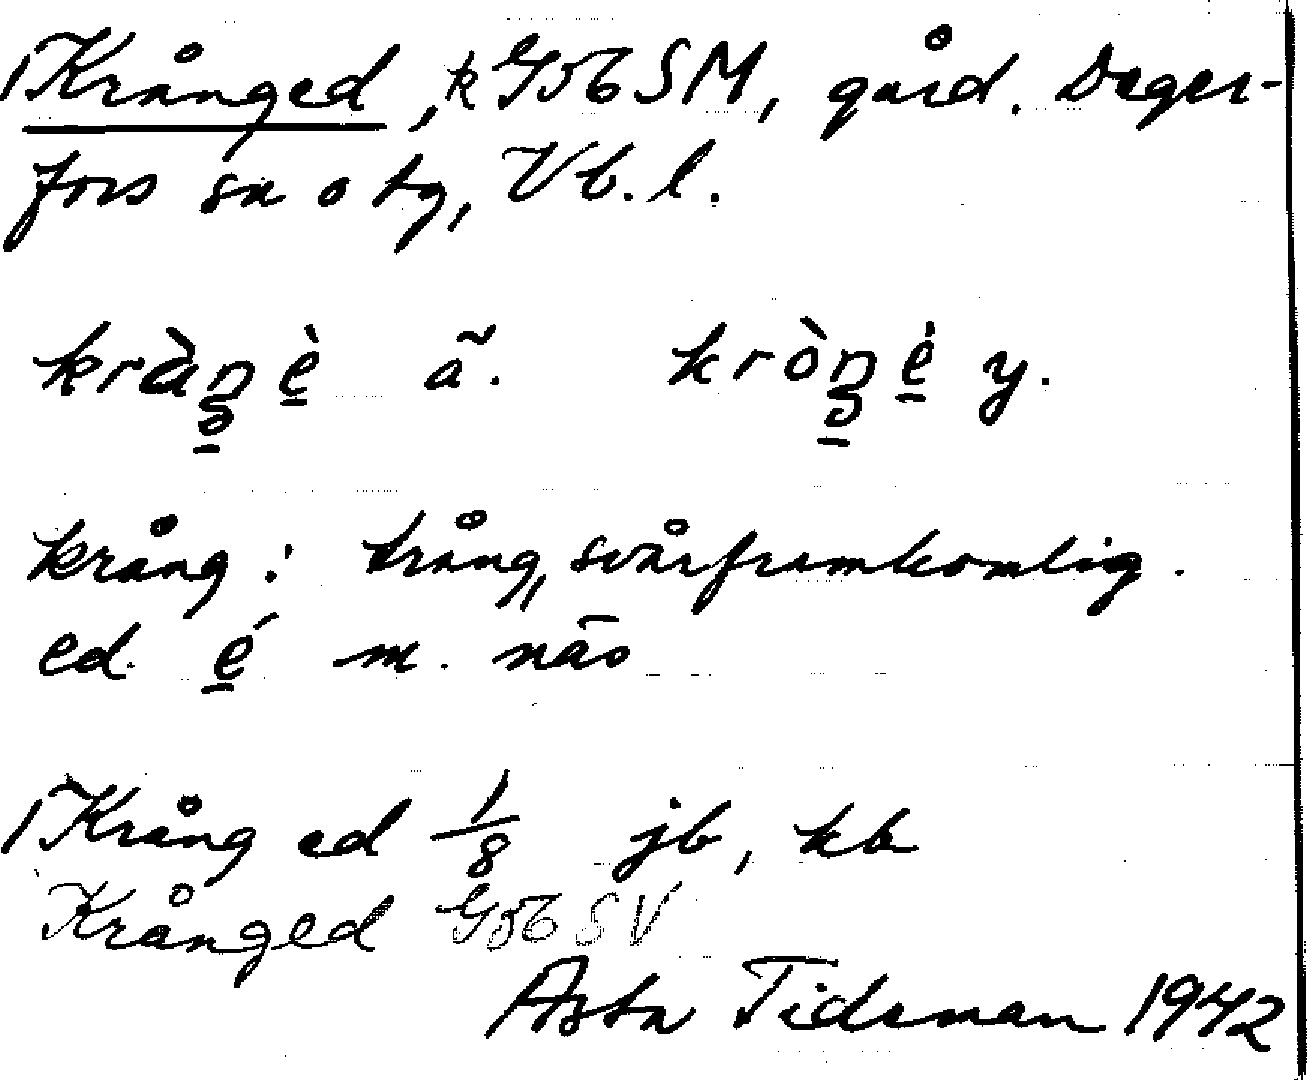 Krånged, k G56 SM, gård. Deger-
fors sn o tg, Vb. l.
kràŋ̱è̱ ã. kròŋ̱è̱ y.
krång: trång, svårframkomlig.
ed. é̱ m. näs
Krång ed 1/8 jb, kb
Krånged G56 SV
Asta Tideman 1942